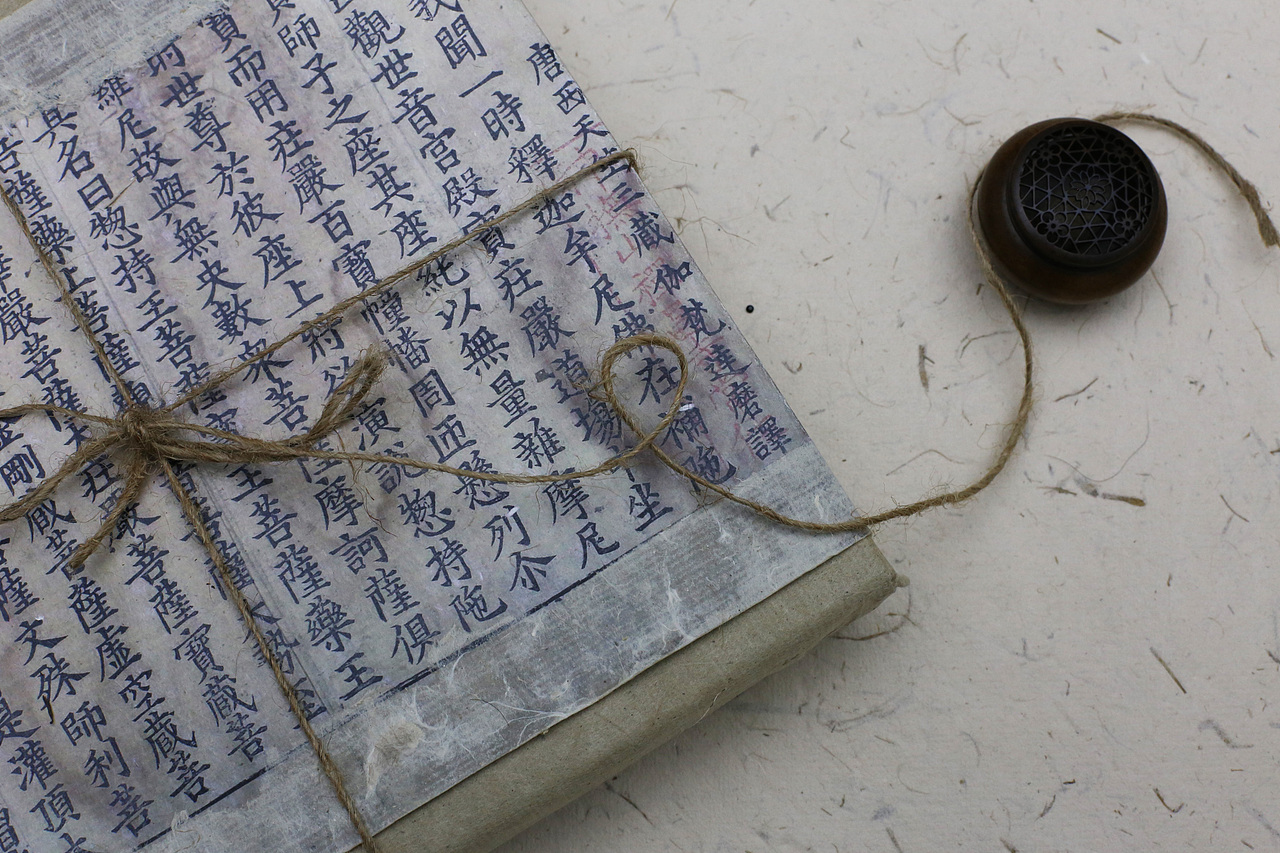 唐西天竺三藏伽梵達磨譯
我聞一時釋迦牟尼佛在補陁
觀世音宮殿寶莊嚴道場坐
師子之座其座純以無量雜摩尼
寶而用莊嚴百寶幢旛周匝懸列尒
時世尊於彼座上將欲演說惣持陁
羅尼故與無央數衆菩薩摩訶薩俱
其名曰惣持王菩薩寶王菩薩藥王
菩薩藥上菩薩觀菩薩大勢至
華嚴菩薩大莊嚴菩薩寶藏菩
金剛藏菩薩虛空藏菩
薩文殊師利菩
是灌頂大